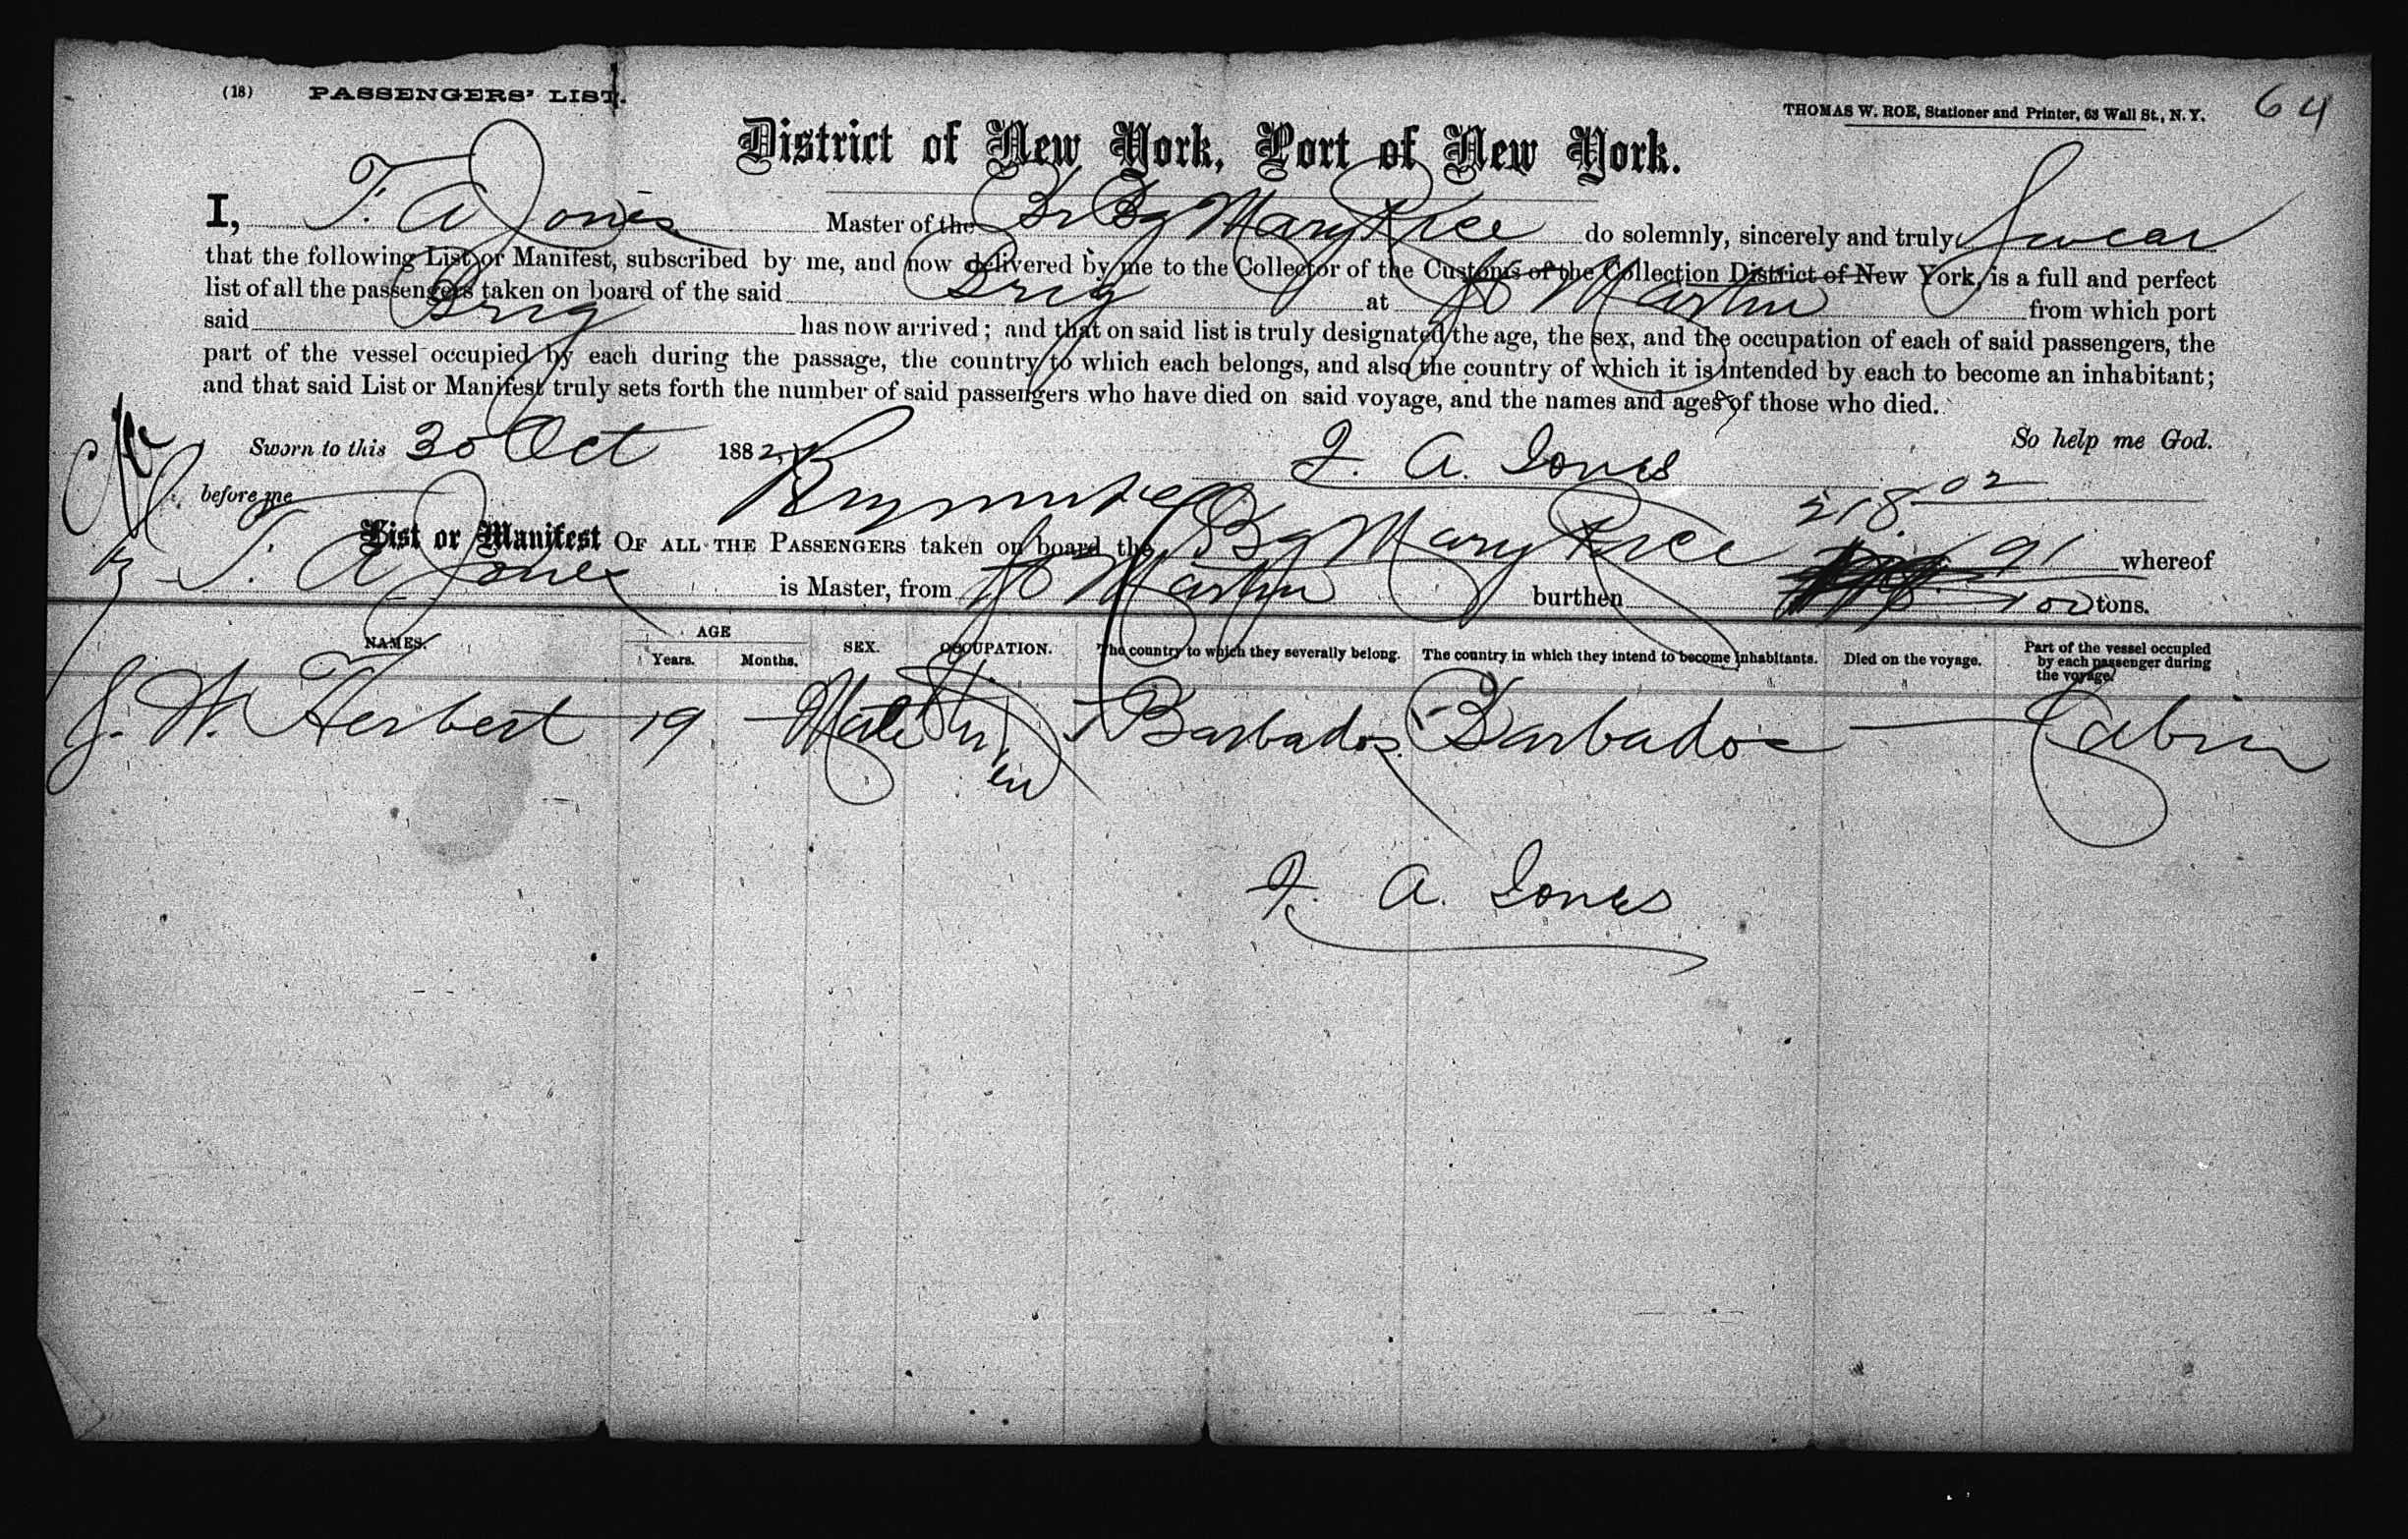 (18) PASSENGERS' LIST.
THOMAS W. ROE, Stationer and Printer, 63 Wall St., N. Y.
64
District of New York, Port of New York.
I, T. A Jones Master of the Br Bg Mary E Rice do solemnly, sincerely and truly Swear
that the following List or Manifest, subscribed by me, and now delivered by me to the Collector of the Customs of the Collection District of New York, is a full and perfect
list of all the passengers taken on board of the said Brig at St Martin from which port
said Brig has now arrived; and that on said list is truly designated the age, the sex, and the occupation of each of said passengers, the
part of the vessel occupied by each during the passage, the country to which each belongs, and also the country of which it is intended by each to become an inhabitant;
and that said List or Manifest truly sets forth the number of said passengers who have died on said voyage, and the names and ages of those who died.
Sworn to this 30 Oct 1882,
So help me God.
before me
T. A. Jones
218 02
List or Manifest OF ALL THE PASSENGERS taken on board the Bg Mary E Rice 91 whereof
T. A Jones is Master, from St Martin burthen 100 tons.
NAMES. AGE Years. Months. SEX. OCCUPATION. The country to which they severally belong. The country in which they intend to become inhabitants. Died on the voyage. Part of the vessel occupied by each passenger during the voyage.
J. W. Herbert 19 Male Barbados Barbados Cabin
T. A. Jones